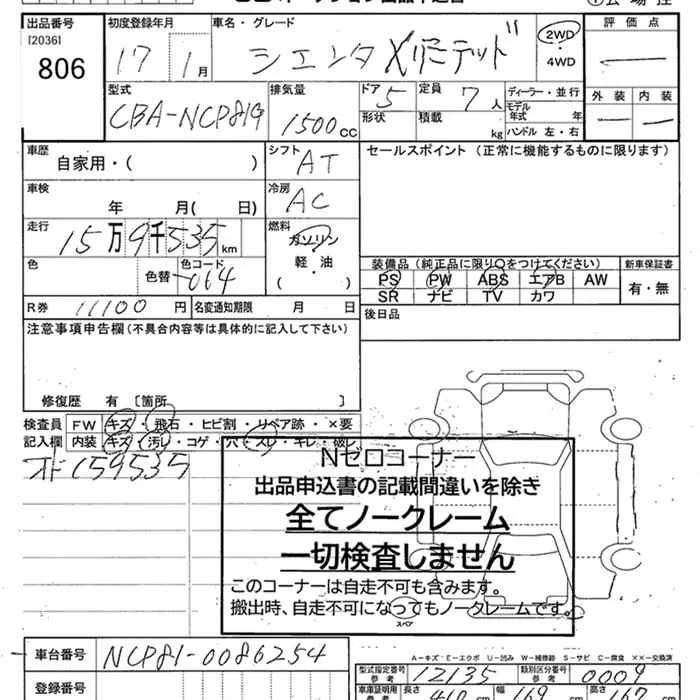 出品番号 初度登録年月 車名・グレード 2WD ・ 4WD 評価点
[2036]
806
17 1月
シエンタ Xリミテッド
型式 排気量 ドア 定員 ディーラー・並行 外装 内装
CBA-NCP81G 1500CC 5 7人 モデル年式 年
形状 積載 kg ハンドル 左・右
車歴 シフト セールスポイント (正常に機能するものに限ります)
自家用・( ) AT
車検 冷房
年 月( 日) AC
走行 燃料
15万9千535km ガソリン
軽・油
( )
色 色替 色コード 064
装備品(純正品に限り○をつけてください) 新車保証書
PS PW ABS エアB AW 有・無
SR ナビ TV カワ
R券 11100円 名変通知期限 月 日 後日品
注意事項申告欄(不具合内容等は具体的に記入して下さい)
修復歴 有 [箇所 ]
検査員 FW キズ・飛石・ヒビ割・リペア跡・×要
記入欄 内装 キズ・汚レ・コゲ・穴・スレ・キレ・破レ
159535
Nゼロコーナー
出品申込書の記載間違いを除き
全てノークレーム
一切検査しません
このコーナーは自走不可も含みます。
搬出時、自走不可になってもノークレームです。
スペア
A-キズ・E-エクボ U-凹み W-補修跡 S-サビ C-腐食 ××-交換済
車台番号 NCP81-0086254 型式指定番号 参考 12135 類別区分番号 参考 0009
登録番号 車庫証明用 参考 長さ 410 cm 幅 169 cm 高さ 167 cm